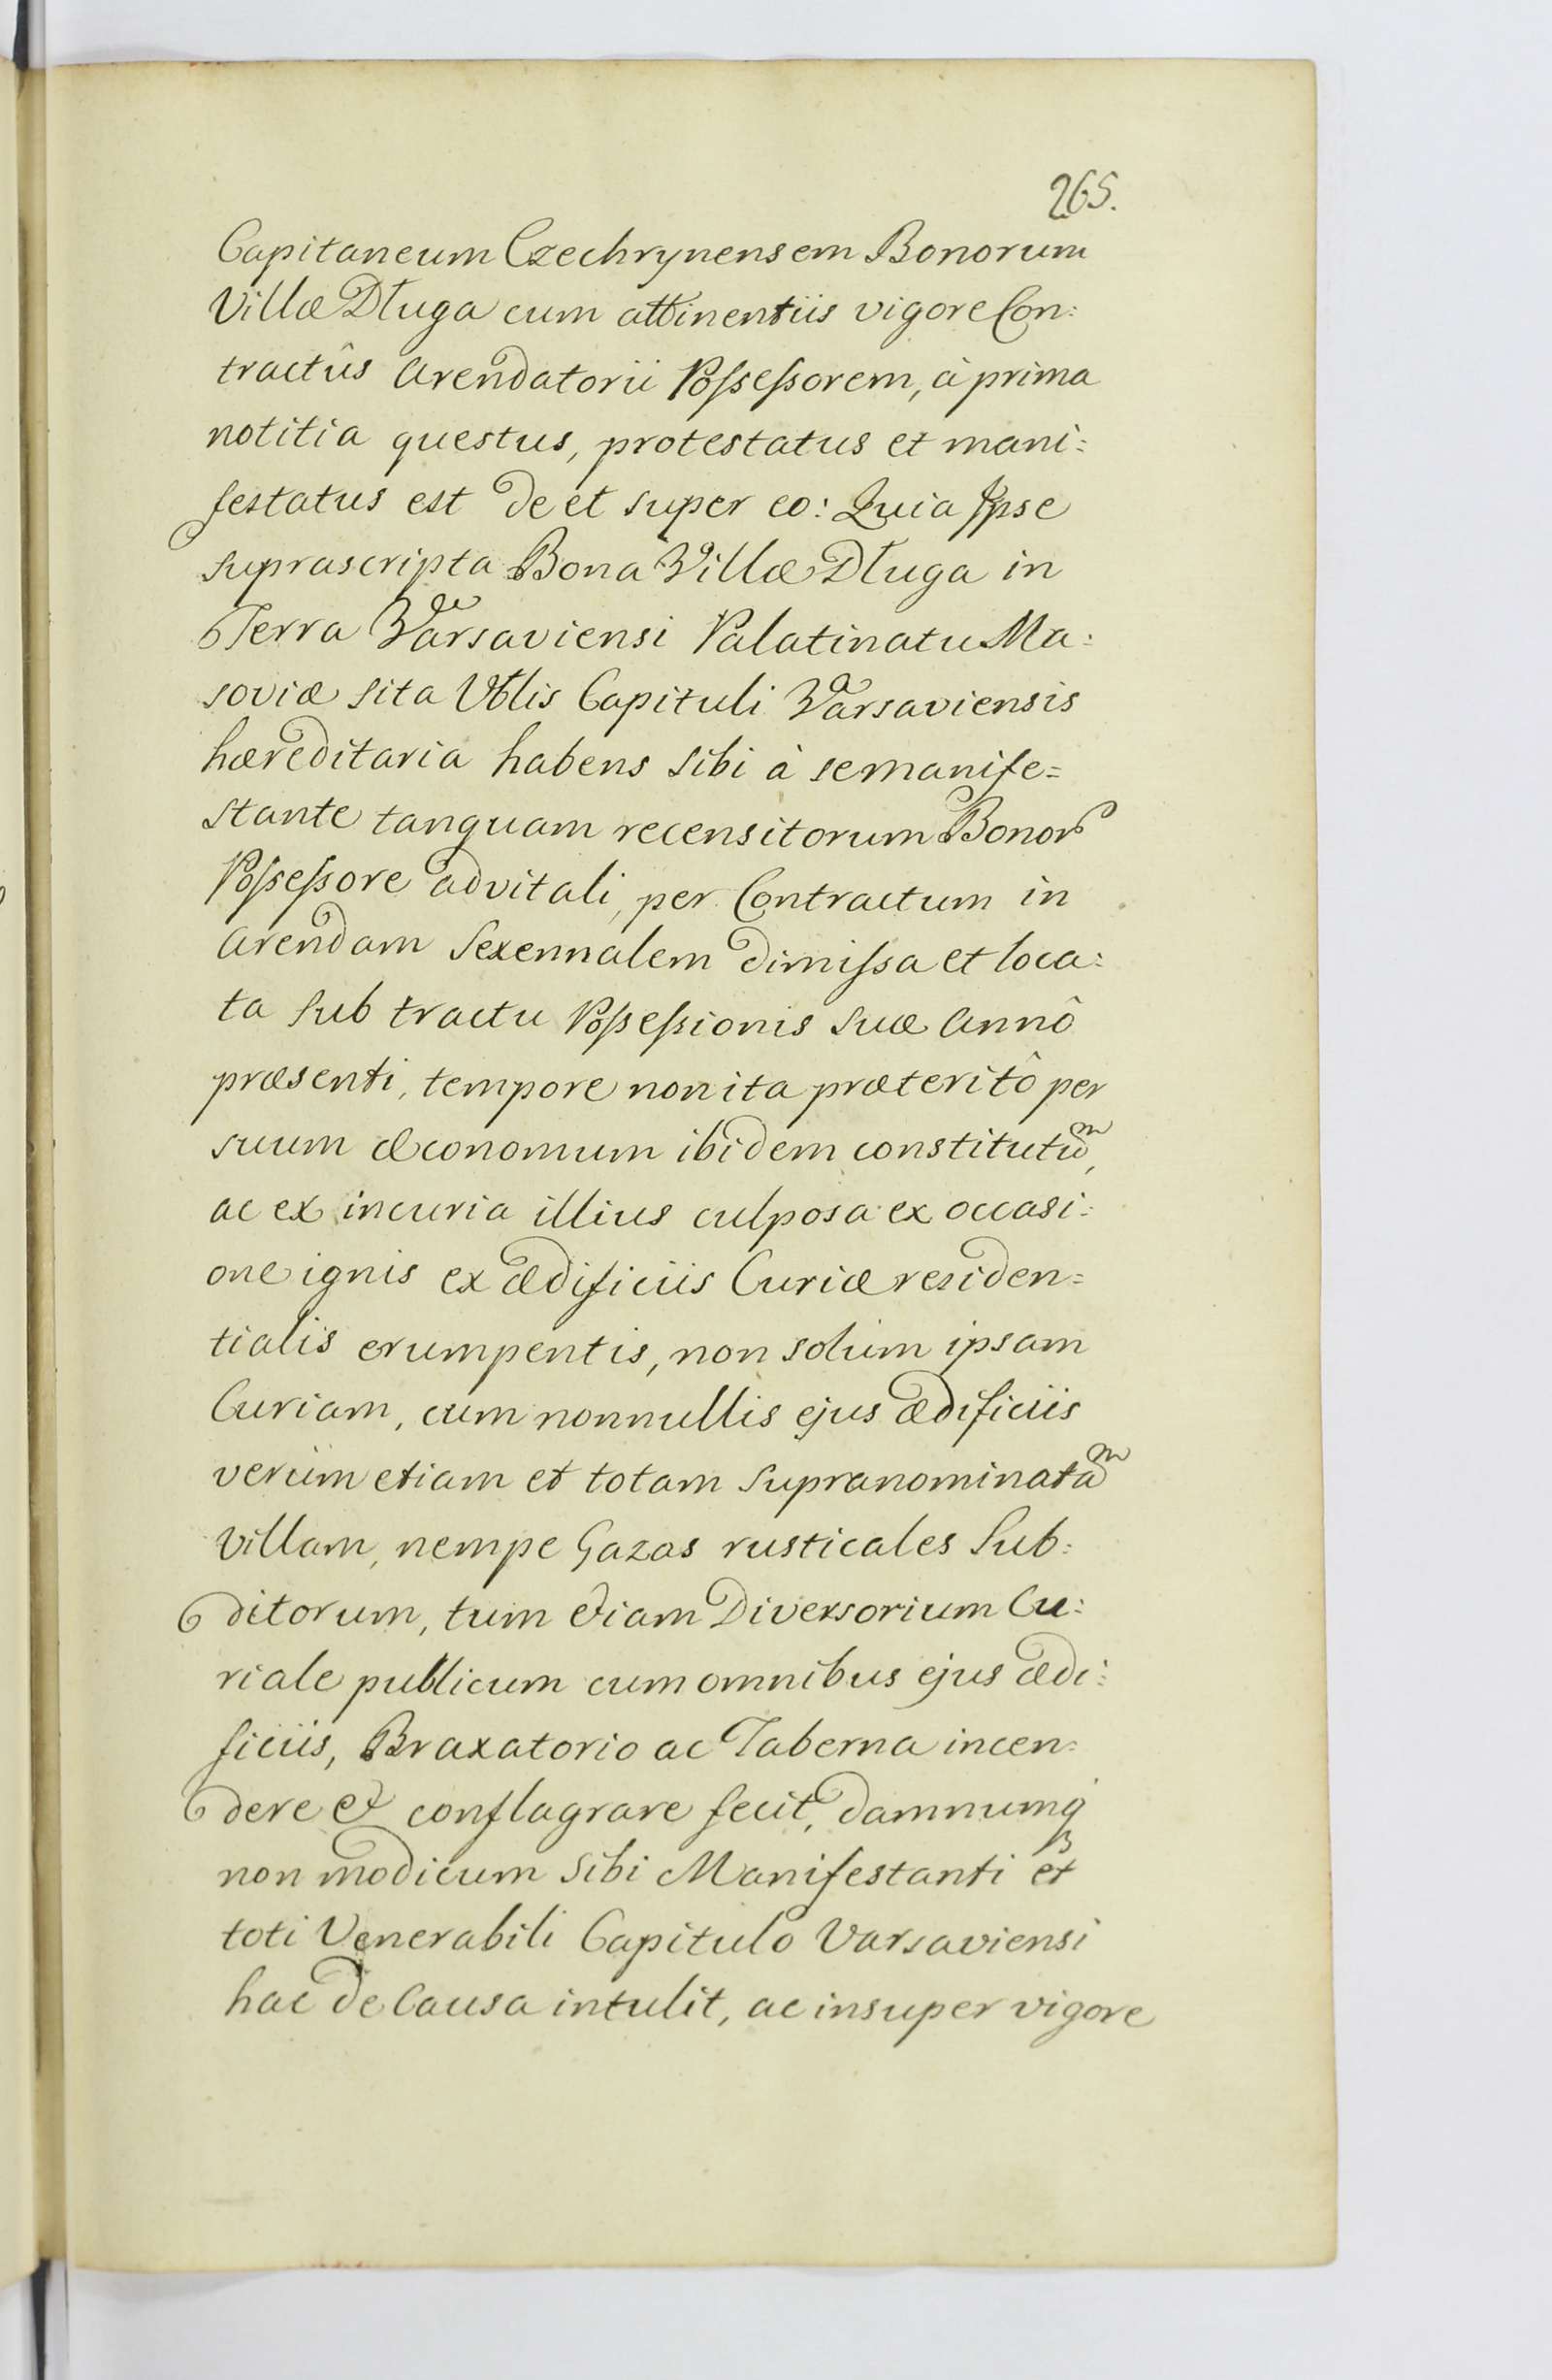 265.
Capitaneum Czechrynensem Bonorum
Villæ Długa cum attinentiis vigore Con:
tractûs Arendatorii Possessorem, à prima
notitia questus, protestatus et mani:
festatus est de et super eo: Quia Ipse
suprascripta Bona Villæ Długa in
Terra Varsaviensi Palatinatu Ma:
soviæ sita Vblis Capituli Varsaviensis
hæreditaria habens sibi à semanife=
stante tanquam recensitorum Bonor
Possessore advitali, per Contractum in
Arendam Sexennalem dimissa et loca:
ta sub tractu Possessionis suæ Annô
præsenti, tempore non ita præteritô per
suum Œconomum ibidem constitutum,
ac ex incuria illius culposa ex occasi:
one ignis ex ædificiis Curiæ residen=
tialis erumpentis, non solùm ipsam
Curiam, cum nonnullis ejus ædificiis
verùm etiam et totam supranominatam
Villam, nempe Gazas rusticales Sub:
ditorum, tum etiam Diversorium Cu:
riale publicum cum omnibus ejus ædi:
ficiis, Braxatorio ac Taberna incen:
dere et conflagrare fecit, damnumq3
non modicum sibi Manifestanti et
toti Venerabili Capitulo Varsaviensi
hac de Causa intulit, ac insuper vigore